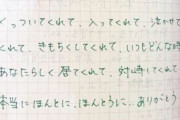 くっついてくれて、入ってくれて、泣かせて
くれて、きもちくしてくれて、いつもどんな時
あなたらしく居てくれて、対峙してくれて
本当にほんとに、ほんとうに…ありがとう